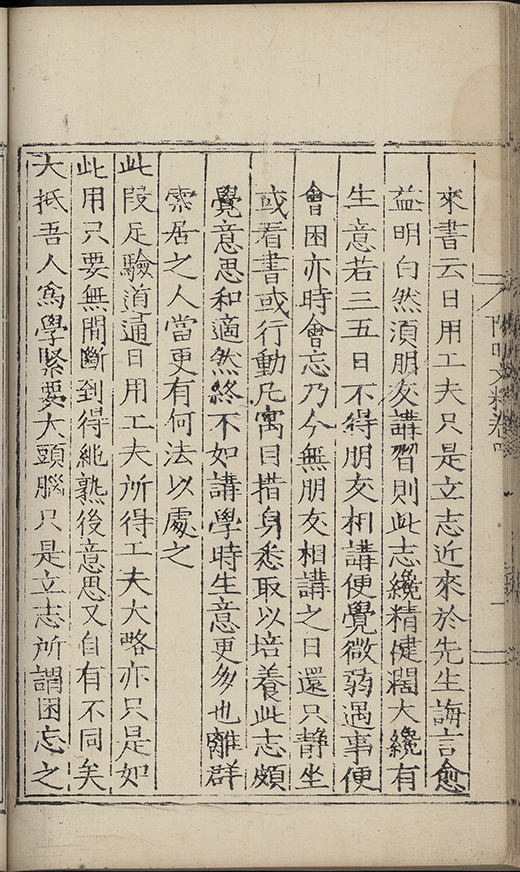 來書云日用工夫只是立志近來於先生誨言愈
益明白然須朋友講習則此志纔精健闊大纔有
生意若三五日不得朋友相講便覺微弱遇事便
會困亦時會忘乃今無朋友相講之日還只靜坐
或看書或行動凡寓目措身悉取以培養此志頗
覺意思和適然終不如講學時生意更多也離群
索居之人當更有何法以處之
此段足驗道通日用工夫所得工夫大略亦只是如
此用只要無間斷到得純熟後意思又自有不同矣
大抵吾人為學緊要大頭腦只是立志所謂困忘之